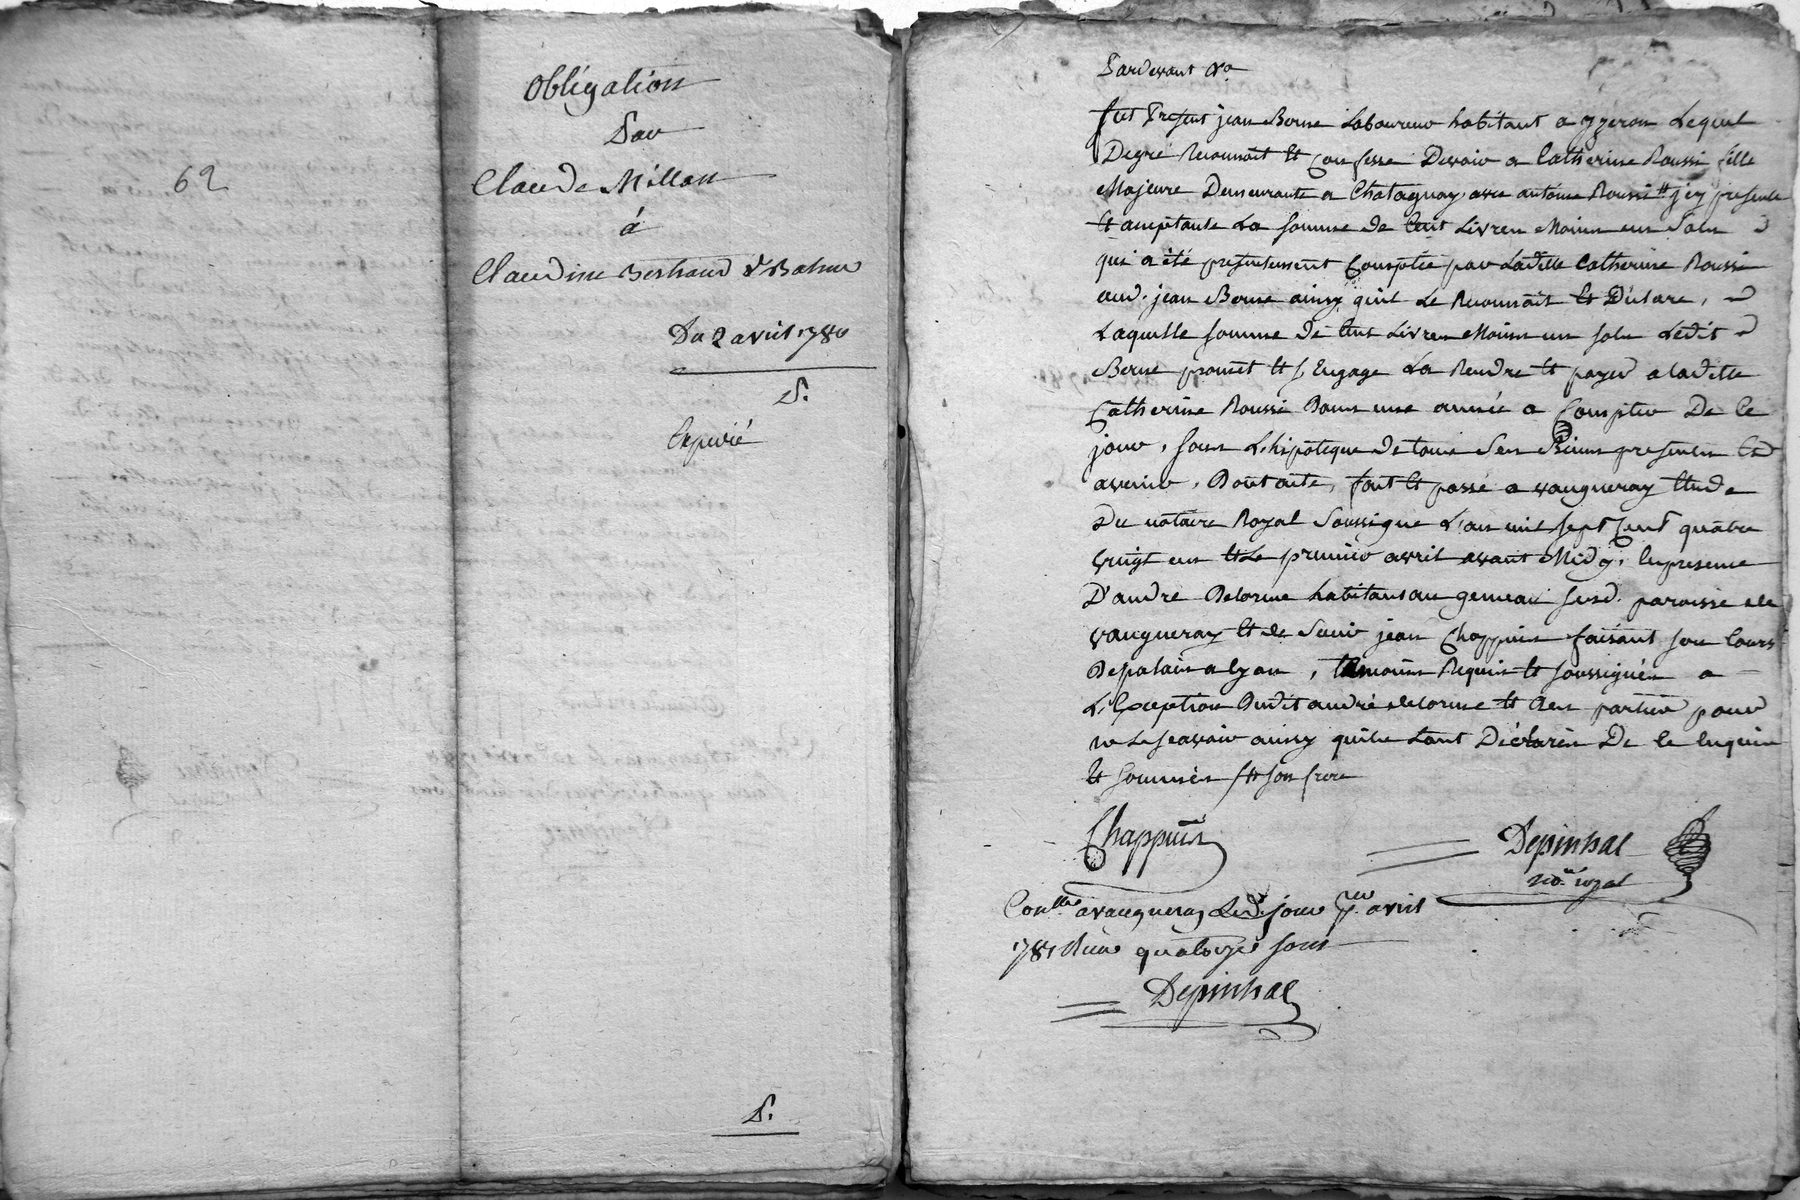 62
Obligation
Par
Claude Millon
à
Claudine Berthaud
Du 2 avril 1780
D.
Expedié
D.
Pardevant No
fut Present jean Berne Laboureur habitant a yzeron Lequel
Degré Reconnoit Et Confesse Devoir a Catherine Roussi fille
Majeure Demeurante a Chatagnay avec antoine Roussi # jcy presente
Et acceptante La somme de Cent Livres Moins un Solu
qui a été presentement Comptée par Ladite Catherine Roussi
aud. jean Berne ainsy quil Le Reconnoit Et Déclare,
Laquelle somme de Cent Livres Moins un solu Ledit
Berne promet Et s'Engage La Rendre Et payer a ladite
Catherine Roussi Dans une année a Compter De Ce
jour, sous L'hipoteque de tous Ses Biens presents Et
avenir, Dont acte, fait Et passé a vaugneray Etude
Du notaire Royal Soussigné L'an mil sept Cent quatre
vingt un Et Le premier avril avant Midy, En presence
D'andré Delorme habitant au gemeau susd. paroisse de
vaugneray Et de Sieur jean Chappuis faisant son Cours
De palais a Lyon, temoins Requis Et soussignés a
L'Exception Dudit andré delorme Et des parties pour
ne Le sçavoir ainsy quils L'ont Déclarés De Ce Enquis
Et Sommés # son frere
Chappuis
Depinhac
No.re royal
Con.lle a vaugneray Led. jour 1.er avril
1781 Reçu quatorze sous
Depinhac